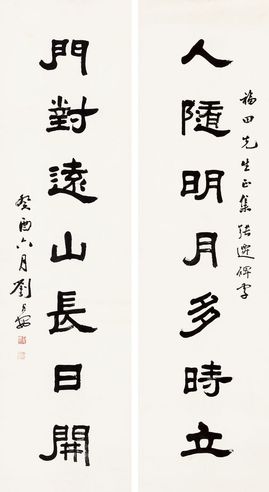 福田先生正集張遷碑字
人隨明月多時立
門對遠山長日開
癸酉六月劉